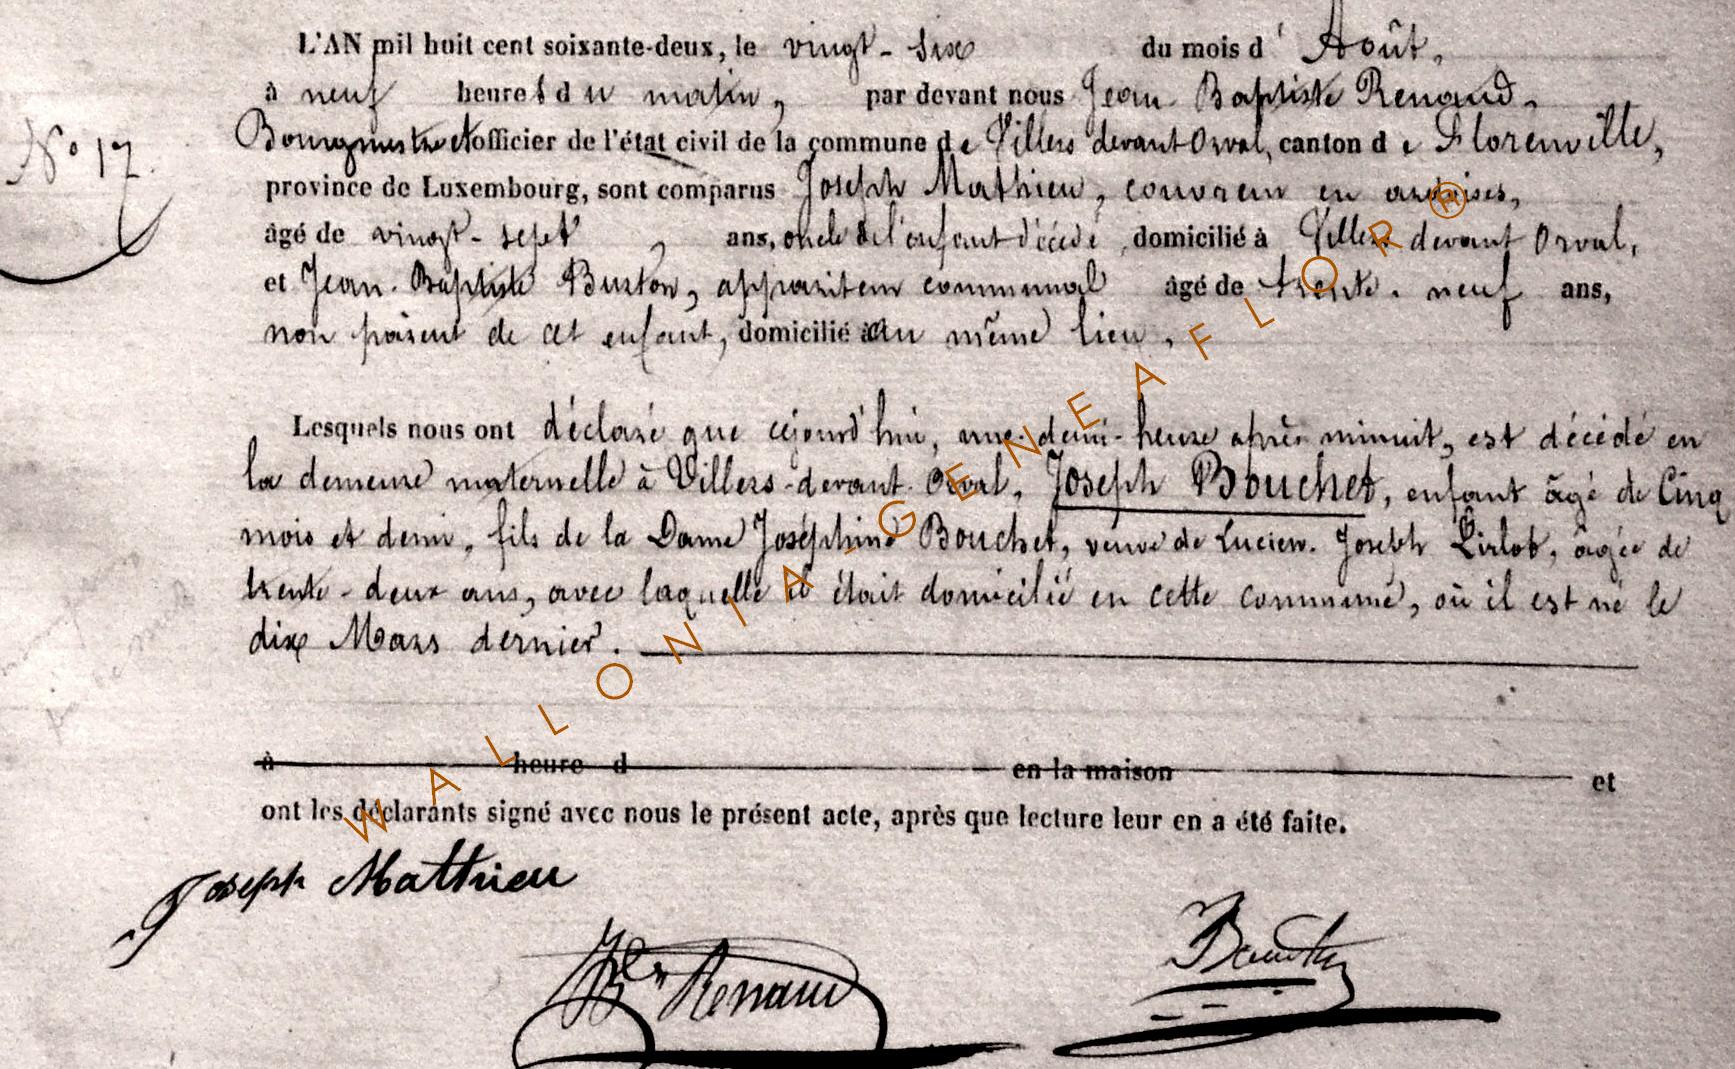 L'AN mil huit cent soixante-deux, le vingt-six du mois d'Août,
à neuf heures du matin, par devant nous Jean Baptiste Renaud,
N° 17.
Bourgmestre et officier de l'état civil de la commune de Villers devant Orval, canton de Florenville,
province de Luxembourg, sont comparus Joseph Mathieu, couvreur en ardoises,
âgé de vingt-sept, ans, oncle de l'enfant décédé, domicilié à Villers devant Orval,
et Jean-Baptiste Buxton, appariteur communal âgé de trente-neuf ans,
non parent de cet enfant, domicilié au même lieu,
Lesquels nous ont déclaré que cejourd'hui, une demi-heure après minuit, est décédé en
la demeure maternelle à Villers-devant-Orval, Joseph Bouchet, enfant âgé de Cinq
mois et demi, fils de la Dame Joséphine Bouchet, veuve de Lucien-Joseph âgée de
trente-deux ans, avec laquelle il était domicilié en cette commune, où il est né le
dix Mars dernier.
à heure d en la maison et
ont les déclarants signé avec nous le présent acte, après que lecture leur en a été faite.
Joseph Mathieu
JBte Renaud
WALLONIA-GENEAFLOR®